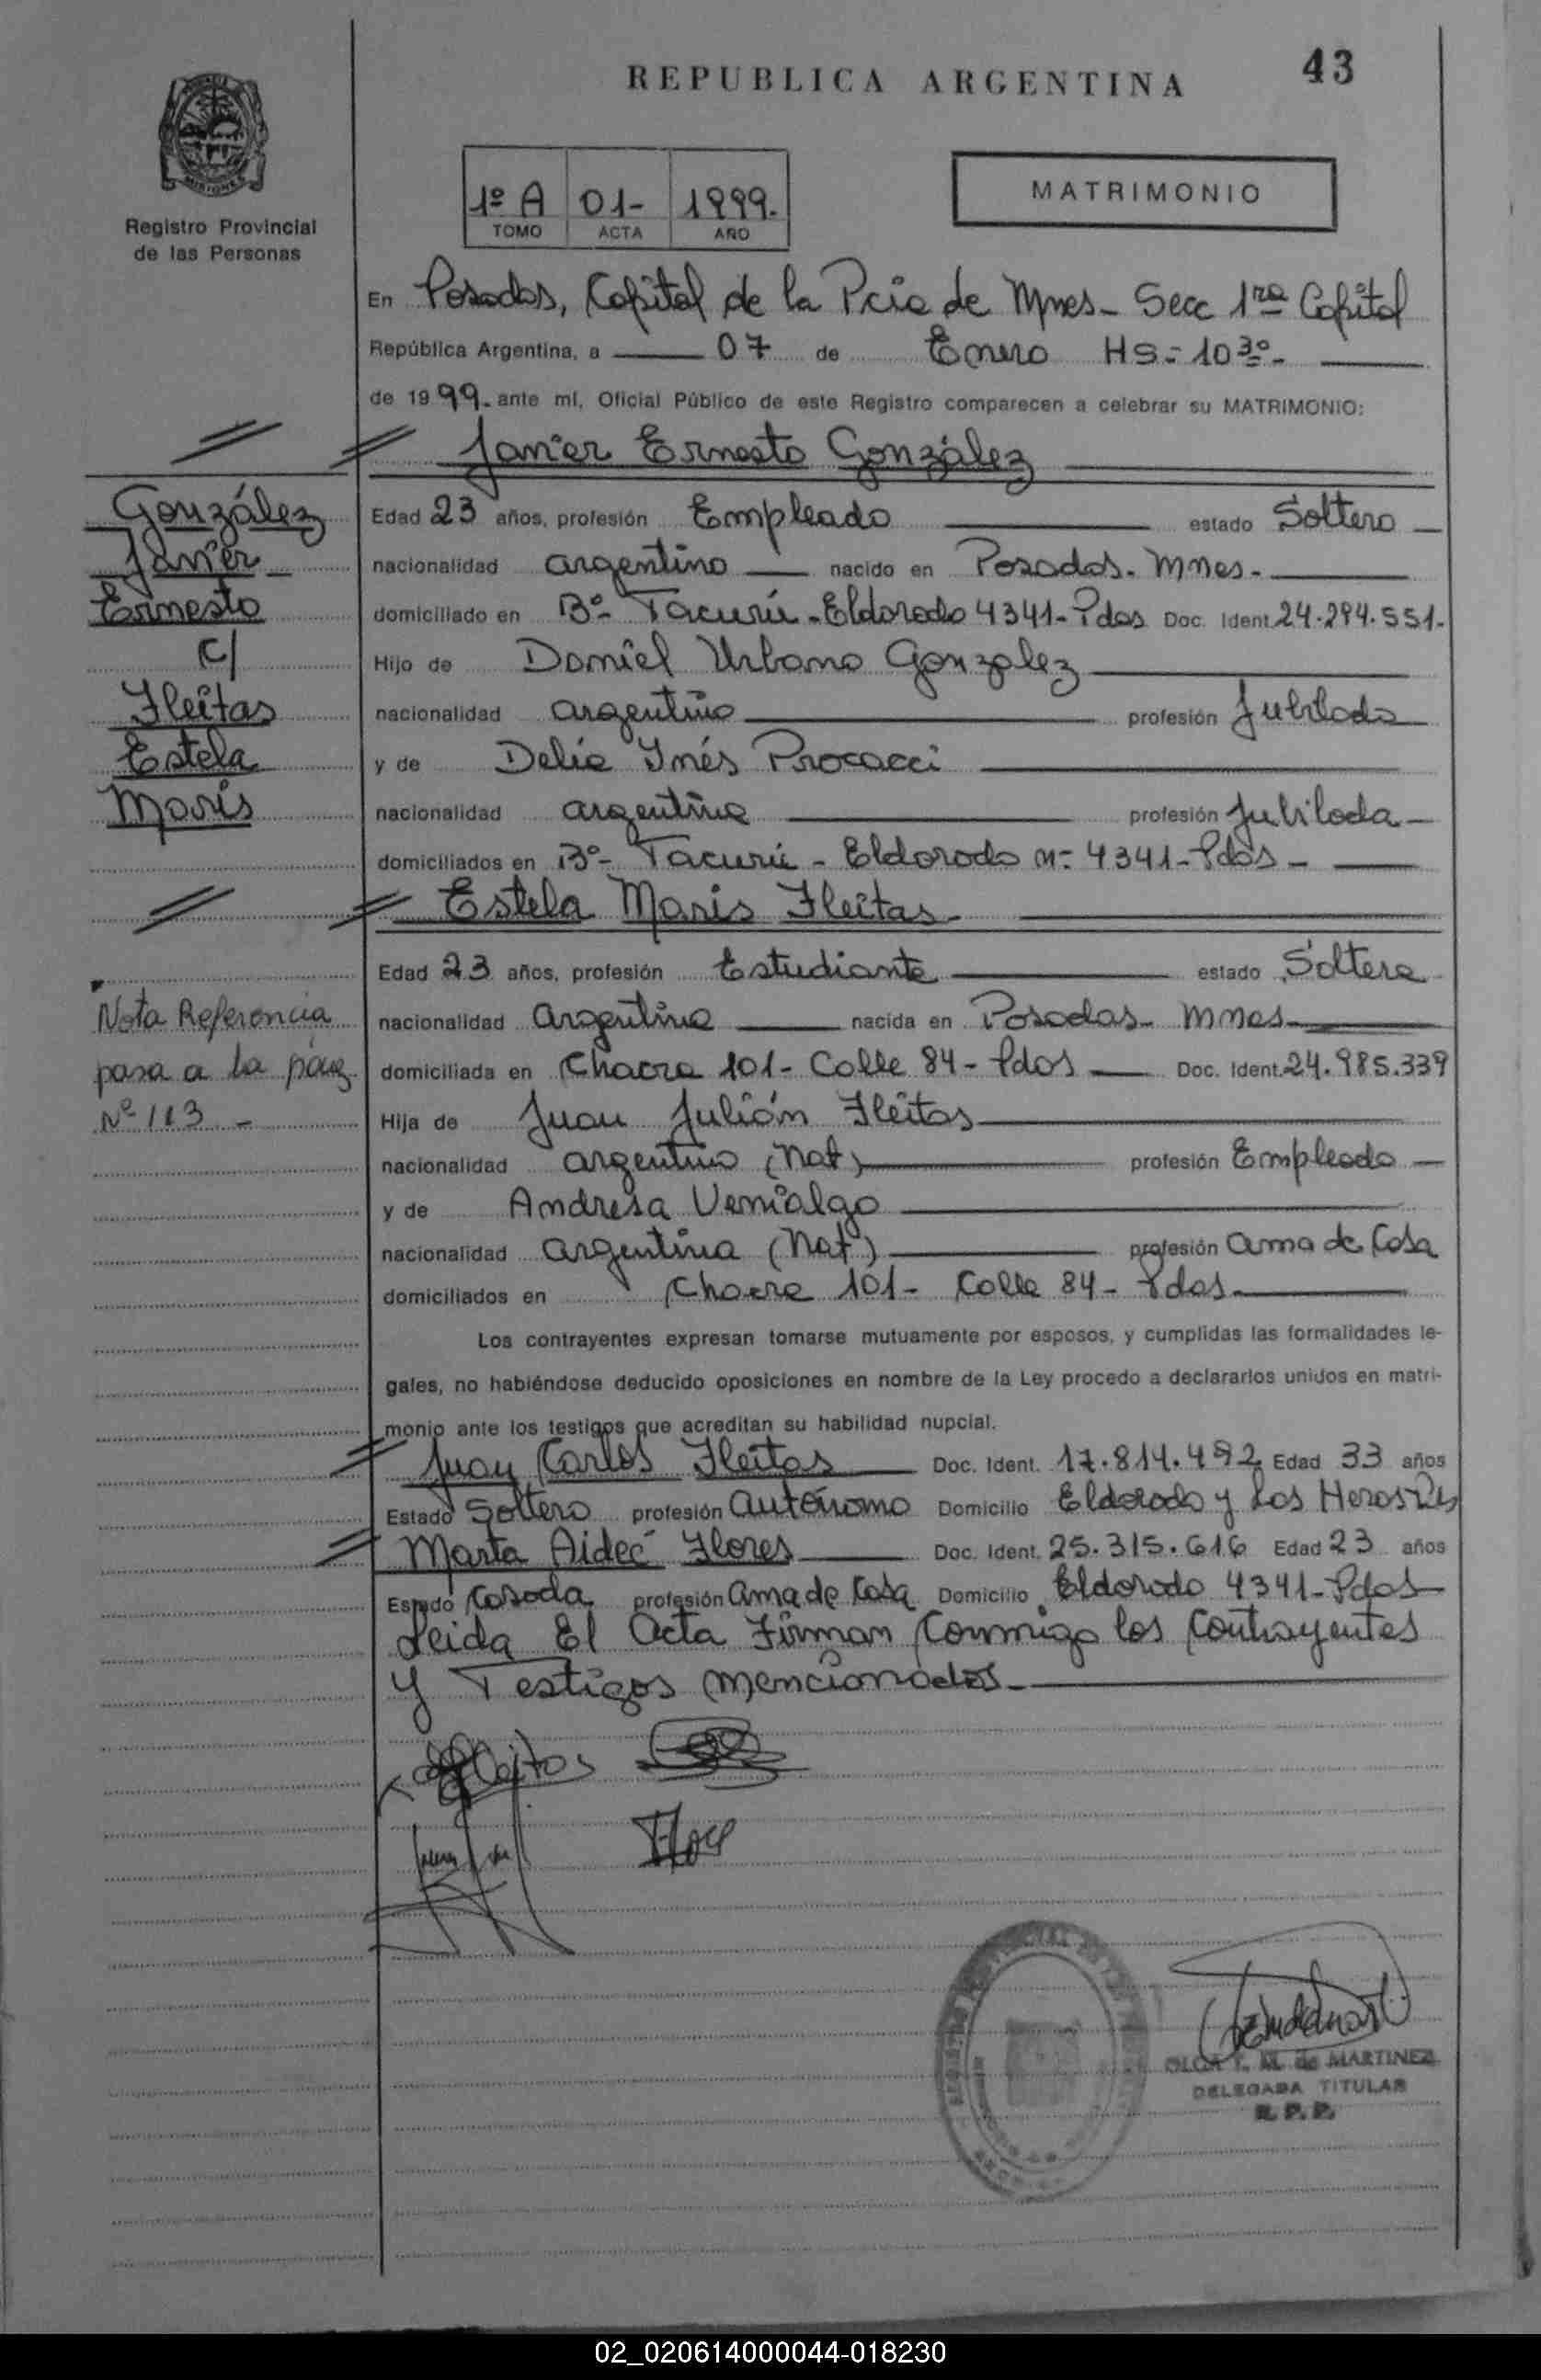 REPUBLICA ARGENTINA
43
MISIONES
Registro Provincial
de las Personas
1º A 01- 1999.
TOMO ACTA AÑO
MATRIMONIO
En Posadas, Capital de la Pcia de Mnes- Secc 1ra Capital
República Argentina, a 07 de Enero HS = 10 30-
de 1999- ante mí, Oficial Público de este Registro comparecen a celebrar su MATRIMONIO:
Javier Ernesto González
González
Javier
Ernesto
C/
Fleitas
Estela
Maris
Edad 23 años, profesión Empleado estado Soltero
nacionalidad argentino nacido en Posadas. Mnes-
domiciliado en Bº- Tacurú - Eldorado 4341- Pdas Doc. Ident 24.294.551-
Hijo de Daniel Urbano Gonzalez
nacionalidad argentino profesión Jubilado
y de Delia Inés Procacci
nacionalidad argentina profesión Jubilada
domiciliados en Bº- Tacurú - Eldorado n= 4341- Pdas -
Estela Maris Fleitas
Edad 23 años, profesión Estudiante estado Soltera
nacionalidad Argentina nacida en Posadas- Mnes-
domiciliada en Chacra 101- Calle 84- Pdas Doc. Ident. 24.985.339
Hija de Juan Julián Fleitas
nacionalidad argentino (Nat) profesión Empleado
y de Andresa Venialgo
nacionalidad argentina (Nat) profesión ama de Casa
domiciliados en Chacra 101- Calle 84- Pdas.
Nota Referencia
pasa a la pág.
Nº 113 -
Los contrayentes expresan tomarse mutuamente por esposos, y cumplidas las formalidades le-
gales, no habiéndose deducido oposiciones en nombre de la Ley procedo a declararlos unidos en matri-
monio ante los testigos que acreditan su habilidad nupcial.
Juan Carlos Fleitas Doc. Ident. 17.814.492 Edad 33 años
Estado Soltero profesión Autónomo Domicilio Eldorado y Los Heros
Marta Aideé Flores Doc. Ident. 25.315.616 Edad 23 años
Estado Casada profesión ama de Casa Domicilio Eldorado 4341- Pdas
Leida El Acta Firman Conmigo los Contrayentes
y Testigos mencionados-
Fleitas
OLGA T. M. de MARTINEZ
DELEGADA TITULAR
R. P. P.
02_020614000044-018230